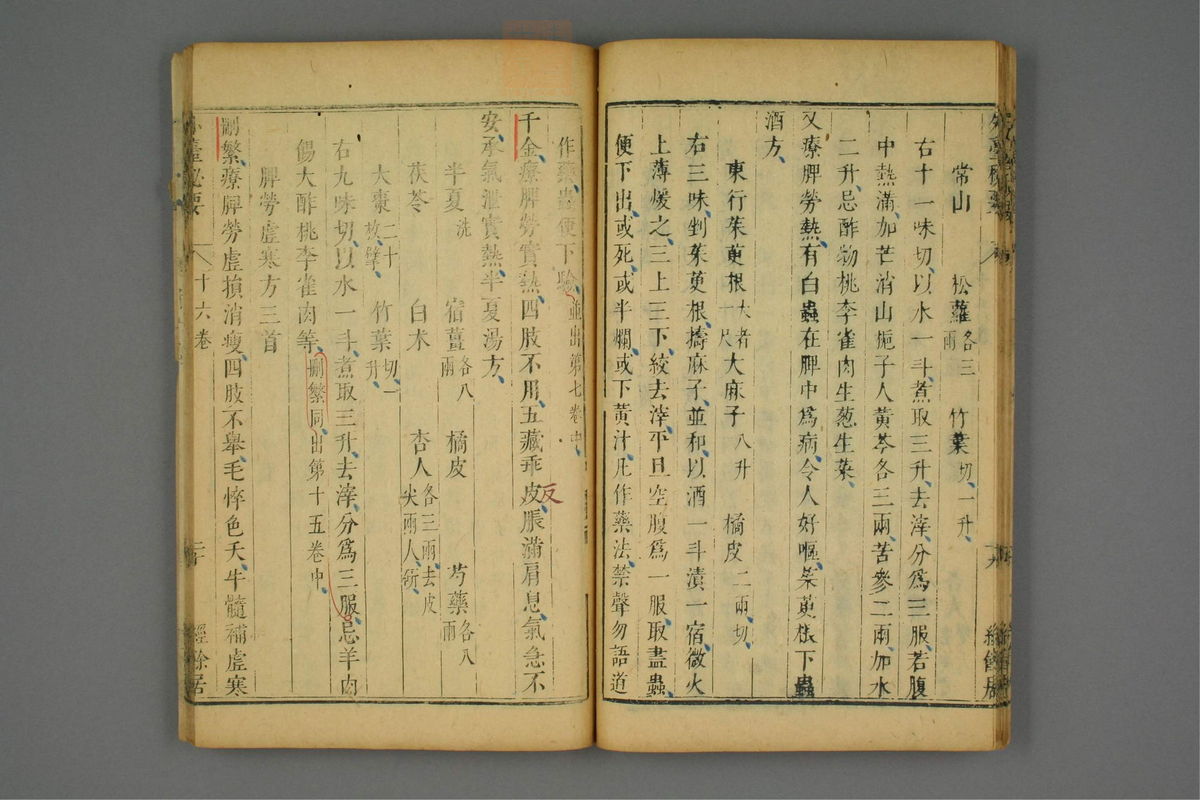 常山 松蘿各三兩 竹葉切一升
右十一味切以水一斗煮取三升去滓分爲三服若腹
中熱滿加芒消山梔子人黃芩各三兩苦參二兩加水
二升忌酢物桃李雀肉生葱生菜
又療脾勞熱有白蟲在脾中爲病令人好嘔茱萸根下蟲
酒方
東行茱萸根大者一尺 大麻子八升 橘皮二兩切
右三味剉茱萸根擣麻子並和以酒一斗漬一宿微火
上薄煖之三上三下絞去滓平旦空腹爲一服取盡蟲
便下出或死或半爛或下黃汁凡作藥法禁聲勿語道
作藥蟲便下驗並出第七卷中
千金療脾勞實熱四肢不用五藏乖反皮脹滿肩息氣急不
安承氣泄實熱半夏湯方
半夏洗 宿薑各八兩 橘皮 芍藥各八兩
茯苓 白朮 杏人各三兩去皮尖兩人研
大棗二十枚擘 竹葉切一升
右九味切以水一斗煮取三升去滓分爲三服忌羊肉
餳大酢桃李雀肉等刪繁同出第十五卷中
脾勞虛寒方三首
刪繁療脾勞虛損消瘦四肢不舉毛悴色夭牛髓補虛寒
臺祕要 十六卷 二十 經餘居